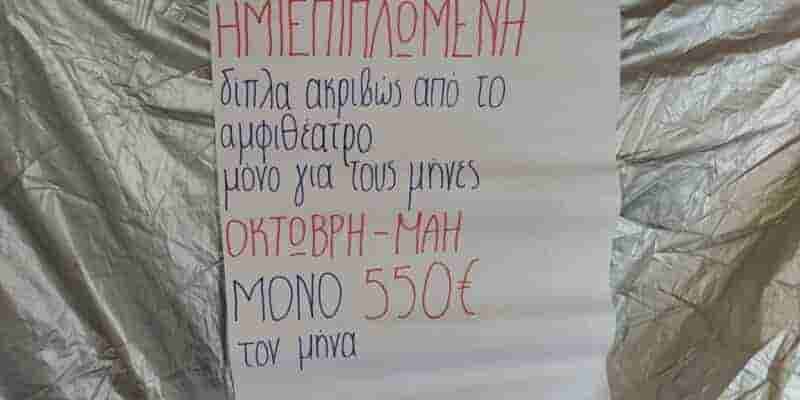 ΗΜΙΕΠΙΠΛΩΜΕΝΗ
δίπλα ακριβώς από το
αμφιθέατρο
μόνο για τους μήνες
ΟΚΤΩΒΡΗ - ΜΑΗ
ΜΟΝΟ 550€
τον μήνα